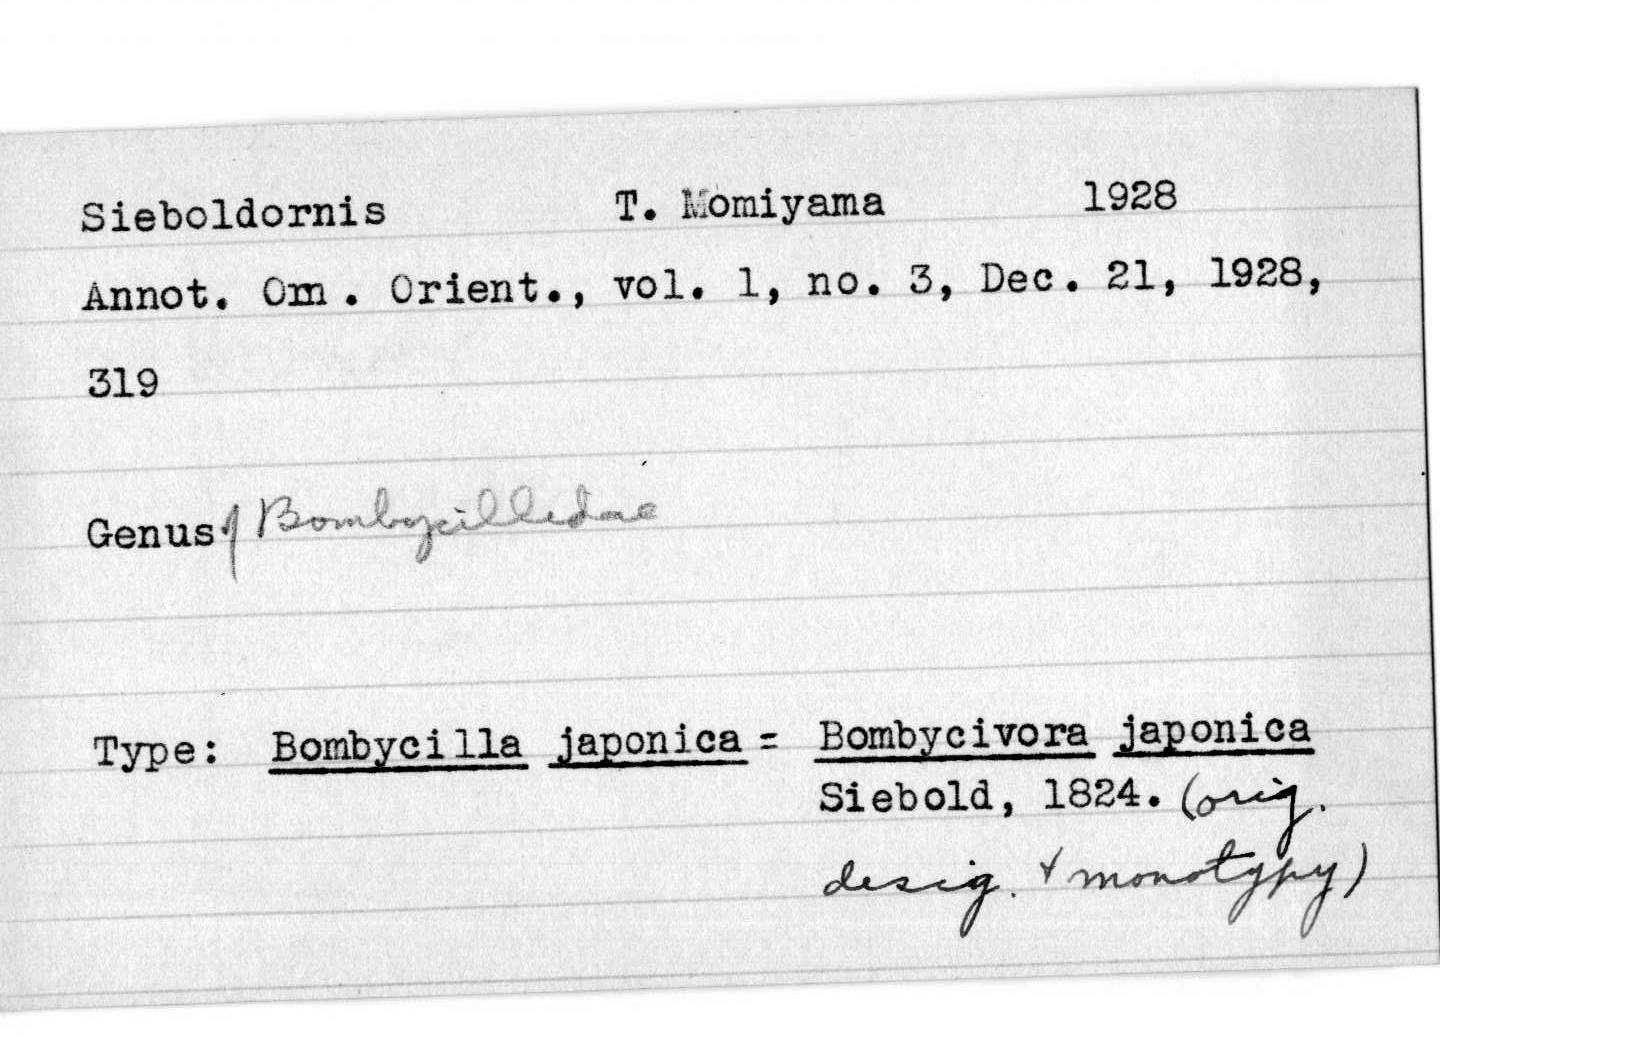 Sieboldornis T. Momiyama 1928
Annot. Orn. Orient., vol. 1, no. 3, Dec. 21, 1928,
319
Genus of Bombycillidae
Type: Bombycilla japonica = Bombycivora japonica
Siebold, 1824. (orig.
desig. + monotypy)